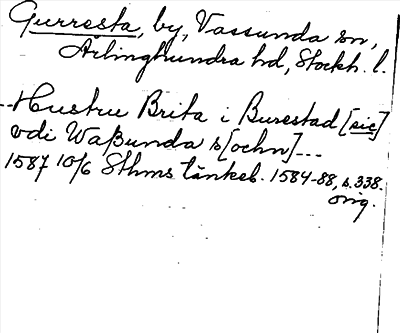 Gurresta, by, Vassunda sn,
Ärlinghundra hd, Stockh. l.
--Hustru Brita i Burestad [sic]
vdi Waßunda s[ochn]---
1587 10/6 Sthms tänkeb. 1584-88, s. 338.
orig.